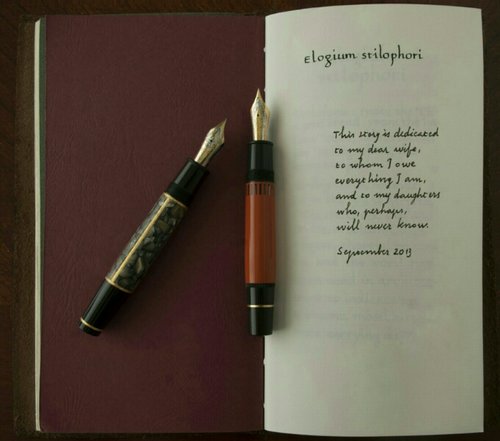 Elogium stilophori
This story is dedicated
to my dear wife,
to whom I owe
everything I am,
and to my daughters
who, perhaps,
will never know.
September 2013